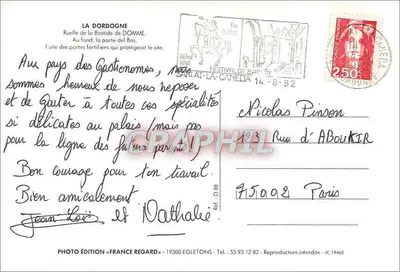 LA DORDOGNE
Ruelle de la Bastide de DOMME.
Au fond, la porte del Bos,
l'une des portes fortifiées qui protégeait le site.
SARLAT-LA-CANEDA
14-8-92
2,50
Au pays des Gastronomes, nous
sommes heureux de nous reposer
et de goûter à toutes ces spécialités
si délicates au palais (mais pas
pour la ligne des
Bon courage pour ton travail.
Bien amicalement
Jean Loïs et Nathalie.
Nicolas Pinson
123 Rue d'ABOUKIR
75002 Paris
GRAPHIL
Réf. : D 88
PHOTO ÉDITION «FRANCE REGARD» - 19300 EGLETONS - Tél. : 55 93 12 82 - Reproduction interdite - IC 19460